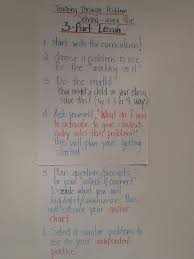 Teaching Through Problem
Solving - using the
3-Part Lesson
1. Start with the curriculum!
2. Choose a problem to use
for the "working on it"
3. Do the math!
How might a child in your class
solve this? (try it 3 or 4 ways)
4. Ask yourself, "What do I need
to activate in your students
entry into this problem?"
this will plan your getting
started
5. Plan questions/prompts
for your reflect & connect
Decide what you will
highlight/summarize; this
will become your anchor
chart
6. Select a similar problem to
use as your independent
practice